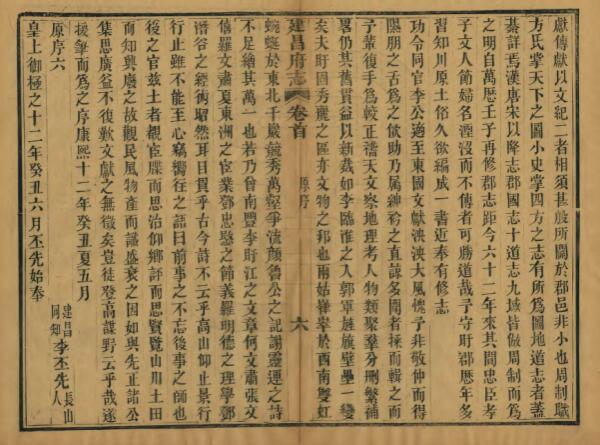 獻傳獻以文紀二者相須甚殷所關於郡邑非小也周制職
方氏掌天下之圖小史掌四方之志有所爲圖地道志者蓋
綦詳焉漢唐宋以降志郡國志十道志九域皆倣周制而爲
之明自萬厯壬子再修郡志距今六十二年來其間忠臣孝
子文人節婦名湮沒而不傳者可勝道哉予守盱郡歷年多
習知川原土俗久欲編成一書近奉有修志
功令同官李公適至東國文獻泱泱大風愧予非敬仲而得
隰朋之舌爲之佽助乃属紳衿之直諒多聞者採而輯之而
予輩復手爲較正禱天文察地理考人物類聚羣分刪繁補
畧仍其舊貫益以新裁如李臨淮之入郭軍旌旗壁壘一變
矣大盱固秀麗之區亦文物之邦也兩姑崒嵂於西南雙虹
建昌府志 卷首 原序 六
蜿蜒於東北千巖競秀萬壑爭流顔魯公之記謝靈運之詩
不足繪其萬一也若乃曾南豐李盱江之文章何文肅張文
僖羅文肅夏東洲之宦業鄧忠愍之節義羅明德之理學鄧
潛谷之經術昭然耳目貫乎古今詩不云乎高山仰止景行
行止雖不能至心竊嚮往之語曰前事之不忘後事之師也
後之官兹土者覩宦牒而思治仰鄕評而思賢覽山川土田
而知興廢之故觀民風物產而識盛衰之因如與先正諸公
集思廣益不復歎文獻之無徵矣豈徒登高謀野云乎哉遂
援筆而爲之序康熙十二年癸丑夏五月
建昌同知李丕先長山人
原序六
皇上御極之十二年癸丑六月丕先始奉